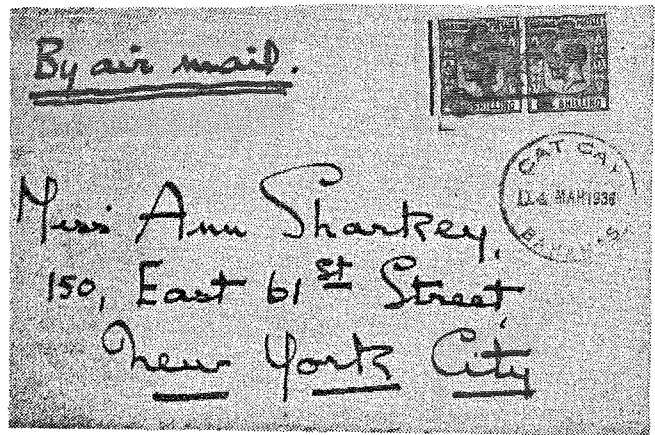 By air mail.
SHILLING SHILLING
CAT CAY
MAR 1936
BAHAMAS
Miss Ann Sharkey,
150, East 61st Street,
New York City